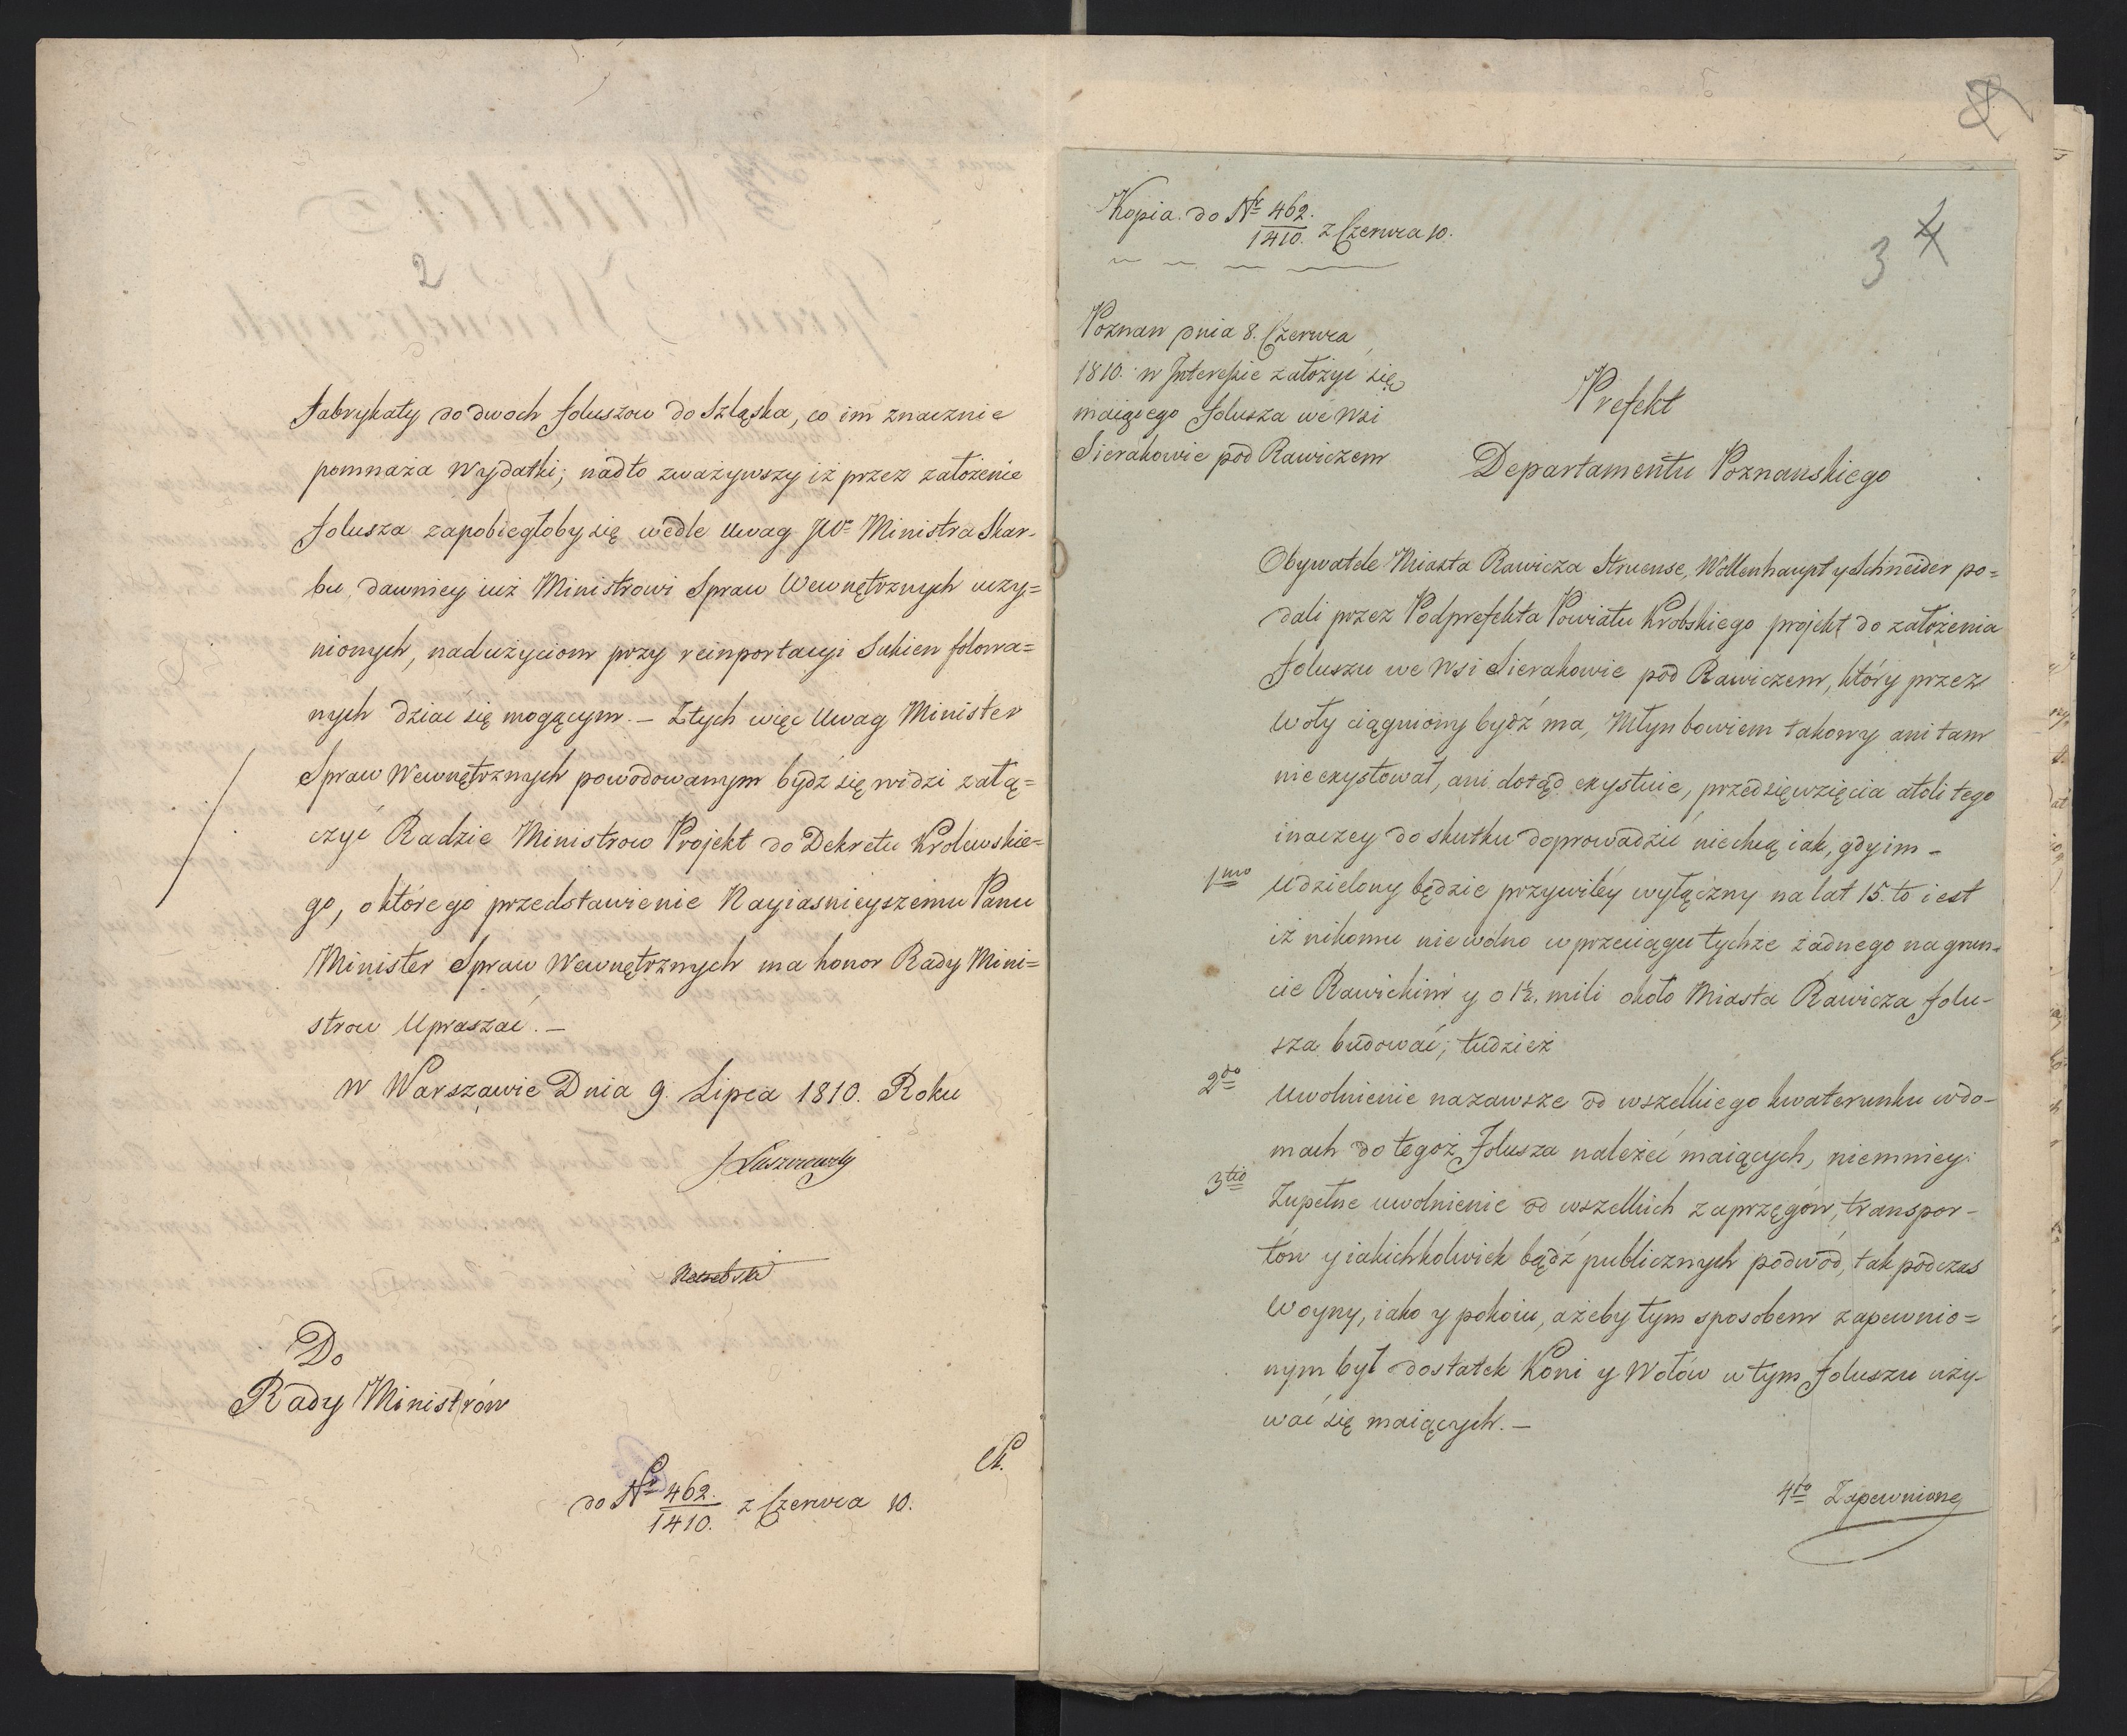 2
Fabrykaty do dwoch foluszow do Szląska, co im znacznie
pomnaża wydatki; nadto zważywszy iż przez założenie
folusza zapobiegłoby się wedle Uwag JWo Ministra Skar-
bu, dawniey iuż Ministrowi Spraw Wewnętrznych uczy=
nionych, nadużyciom przy reinportacyi Sukien folowa=
nych dziać się mogącym. – Z tych więc Uwag Minister
Spraw Wewnętrznych powodowanym bydź się widzi załą=
czyć Radzie Ministrow Projekt do Dekretu Krolewskie=
go, o którego przedstawienie Nayiasnieyszemu Panu
Minister Spraw Wewnętrznych ma honor Rady Mini=
strow Upraszać. –
W Warszawie Dnia 9. Lipca 1810. Roku
J Łuszczewski
Do
Rady Ministrów
do No 462./1410. z Czerwca 10.
Kopia do No 462./1410. z Czerwca 10.
3 4
Poznan dnia 8. Czerwca
1810. w Interessie założyć się
maiącego folusza we Wsi
Sierakowie pod Rawiczem
Prefekt
Departamentu Poznanskiego
Obywatele Miasta Rawicza Struense, Wollenhaupt y Schneider po=
dali przez Podprefekta Powiatu Krobskiego projekt do założenia
foluszu we Wsi Sierakowie pod Rawiczem, który przez
woły ciągniony bydź ma, Młyn bowiem takowy ani tam
nie exystował, ani dotąd exystuie, przedsięwzięcia atoli tego
inaczey do skutku doprowadzić nie chcą iak, gdy im –
1mo Udzielony będzie przywiley wyłączny na lat 15. to iest
iż nikomu nie wolno w przeciągu tychże żadnego na grun=
cie Rawickim y o 1½ mili około Miasta Rawicza folu-
sza budować; tudzież
2do Uwolnienie nazawsze od wszelkiego kwaterunku w do-
mach do tegoż folusza należeć maiących, niemniey:
3tio Zupełne uwolnienie od wszelkich zaprzęgów, transpor-
tów y iakichkolwiek bądź publicznych podwód, tak podczas
Woyny, iako y pokoiu, ażeby tym sposobem zapewnio=
nym był dostatek Koni y Wołów w tym foluszu uży-
wać się maiących. –
4to Zapewnione